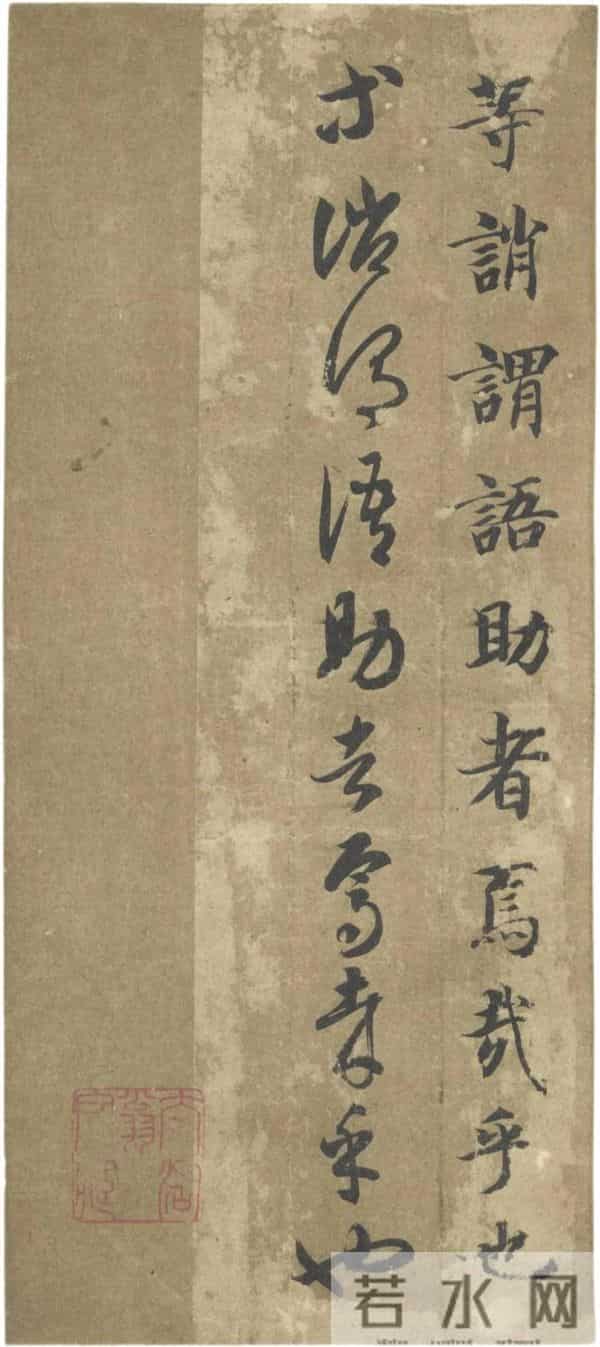 等誚謂語助者焉哉乎也
等誚謂語助者焉哉乎也
若水网